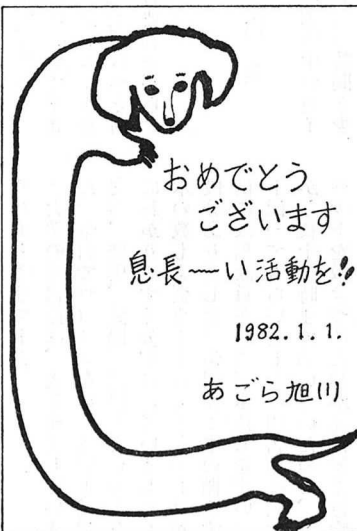 おめでとう
ございます
息長〜い活動を!!
1982.1.1.
あごら旭川